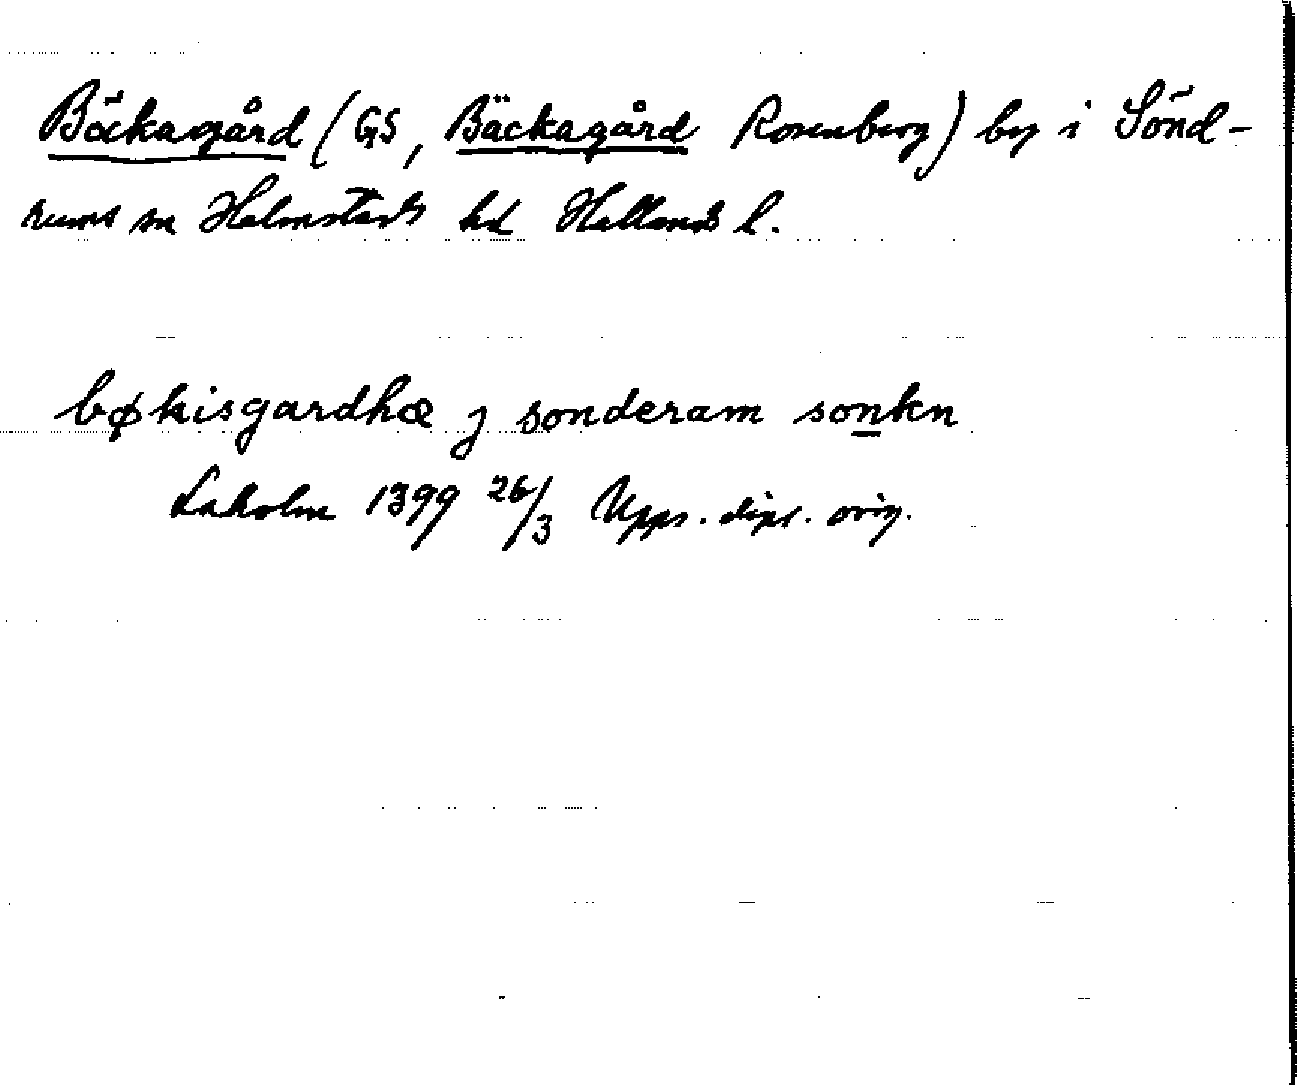 Böckagård (GS, Bäckagård Rosenberg) by i Sönd-
rums sn Halmstads hd Hallands l.
bøkisgardhæ j sonderam sonkn
Laholm 1399 26/3 Upps. dipl. orig.